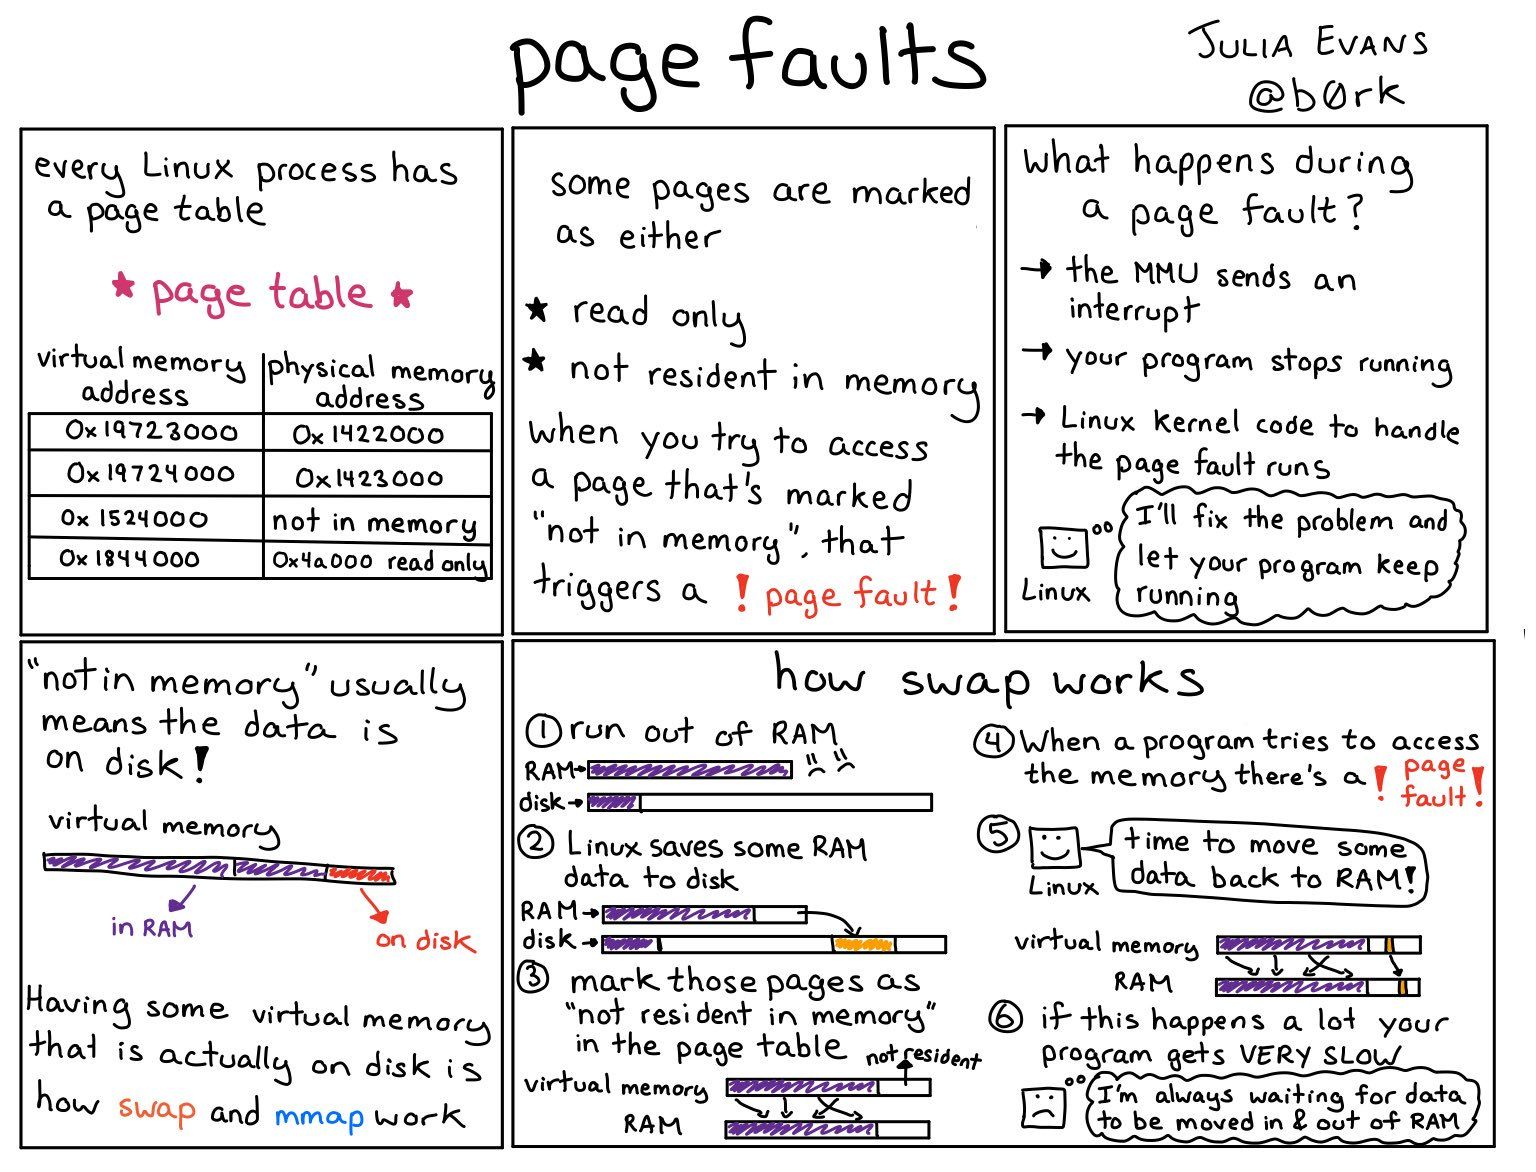 page faults
JULIA EVANS
@b0rk
every Linux process has
a page table
★ page table ★
virtual memory
address
physical memory
address
0x19723000
0x1422000
0x19724000
0x1423000
0x1524000
not in memory
0x1844000
0x4a000 read only
some pages are marked
as either
★ read only
★ not resident in memory
when you try to access
a page that's marked
"not in memory", that
triggers a ! page fault!
what happens during
a page fault?
→ the MMU sends an
interrupt
→ your program stops running
→ Linux kernel code to handle
the page fault runs
I'll fix the problem and
let your program keep
running
Linux
"not in memory" usually
means the data is
on disk!
virtual memory
in RAM
on disk
Having some virtual memory
that is actually on disk is
how swap and mmap work
how swap works
① run out of RAM
RAM→
disk→
② Linux saves some RAM
data to disk
RAM→
disk→
③ mark those pages as
"not resident in memory"
in the page table
not resident
virtual memory
RAM
④ When a program tries to access
the memory there's a ! page
fault!
⑤ time to move some
data back to RAM!
Linux
virtual memory
RAM
⑥ if this happens a lot your
program gets VERY SLOW
I'm always waiting for data
to be moved in & out of RAM